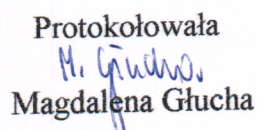 Protokołowała
M. Głucha
Magdalena Głucha